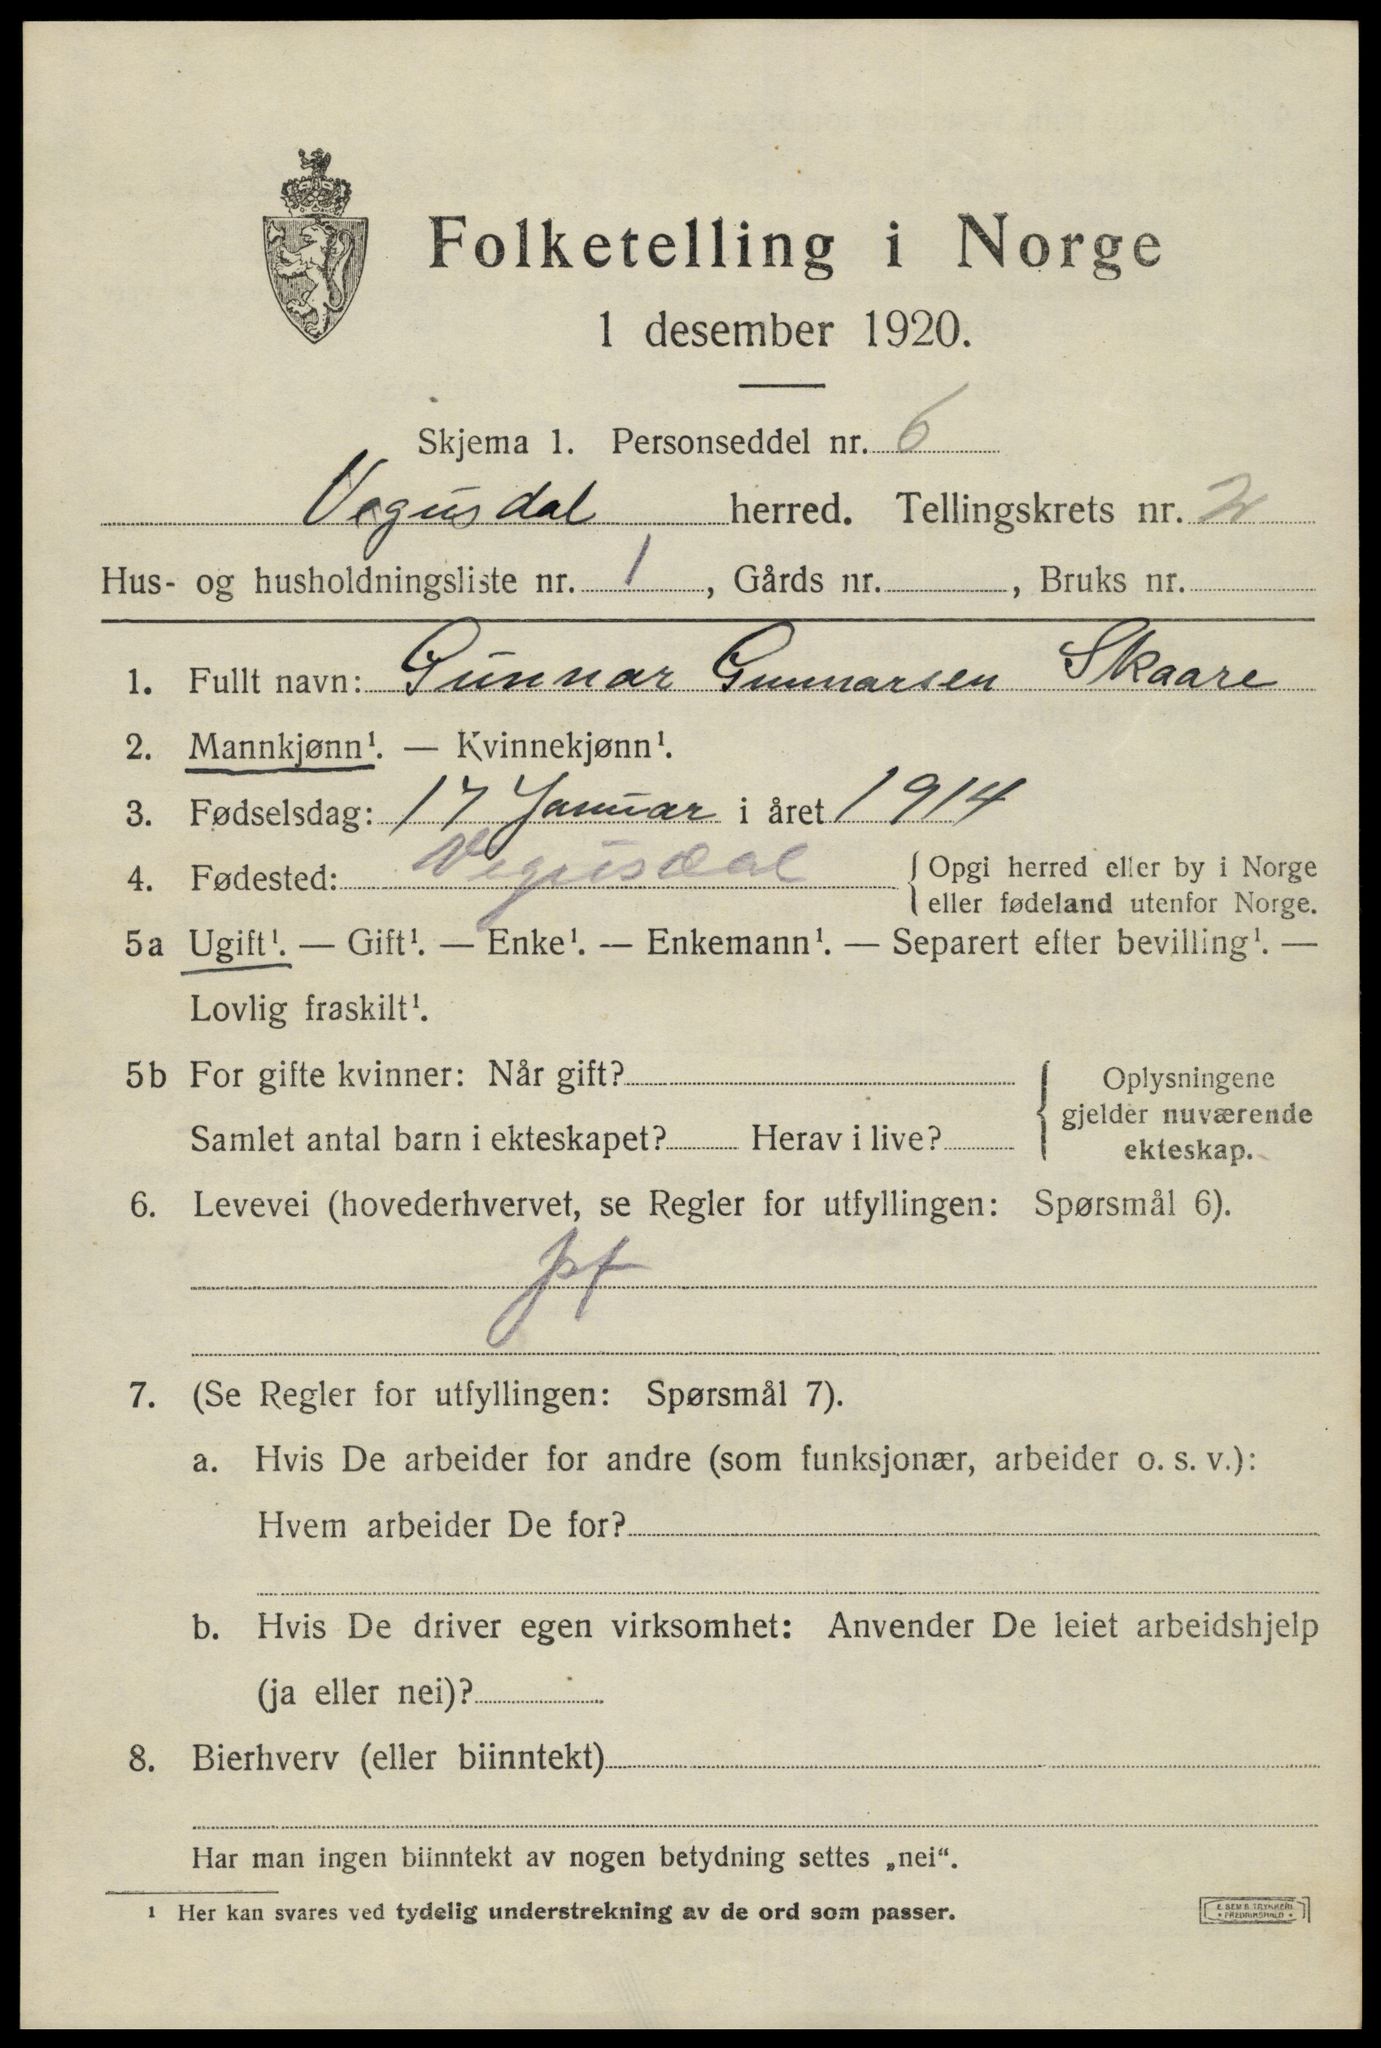 Folketelling i Norge
1 desember 1920.
Skjema 1. Personseddel nr. 6
Vegusdal herred. Tellingskrets nr. 2
Hus- og husholdningsliste nr. 1, Gårds nr. , Bruks nr.
1. Fullt navn: Gunnar Gunnarsen Skaare
2. Mannkjønn¹. — Kvinnekjønn¹.
3. Fødselsdag: 17 Januar i året 1914
4. Fødested: Vegusdal { Opgi herred eller by i Norge
eller fødeland utenfor Norge.
5a Ugift¹. — Gift¹. — Enke¹. — Enkemann¹. — Separert efter bevilling¹. —
Lovlig fraskilt¹.
5b For gifte kvinner: Når gift?
Samlet antal barn i ekteskapet? Herav i live?
{ Oplysningene
gjelder nuværende
ekteskap.
6. Levevei (hovederhvervet, se Regler for utfyllingen: Spørsmål 6).
7. (Se Regler for utfyllingen: Spørsmål 7).
a. Hvis De arbeider for andre (som funksjonær, arbeider o. s. v.):
Hvem arbeider De for?
b. Hvis De driver egen virksomhet: Anvender De leiet arbeidshjelp
(ja eller nei)?
8. Bierhverv (eller biinntekt)
Har man ingen biinntekt av nogen betydning settes „nei“.
¹ Her kan svares ved tydelig understrekning av de ord som passer.
E. SEM'S TRYKKERI
• FREDRIKSHALD •